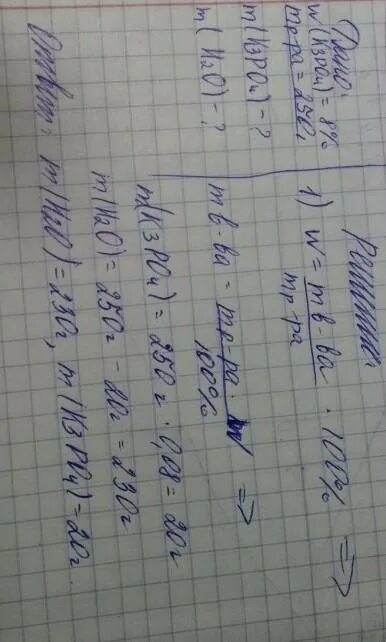 Дано:
W (K3PO4) = 8%
mр-ра = 250г
m(K3PO4) - ?
m(H2O) - ?
Решение:
1) W = mв-ва / mр-ра · 100% =>
mв-ва = mр-ра · W / 100% =>
m(K3PO4) = 250г · 0,08 = 20г
m(H2O) = 250г - 20г = 230г
Ответ: m(H2O) = 230г, m(K3PO4) = 20г.